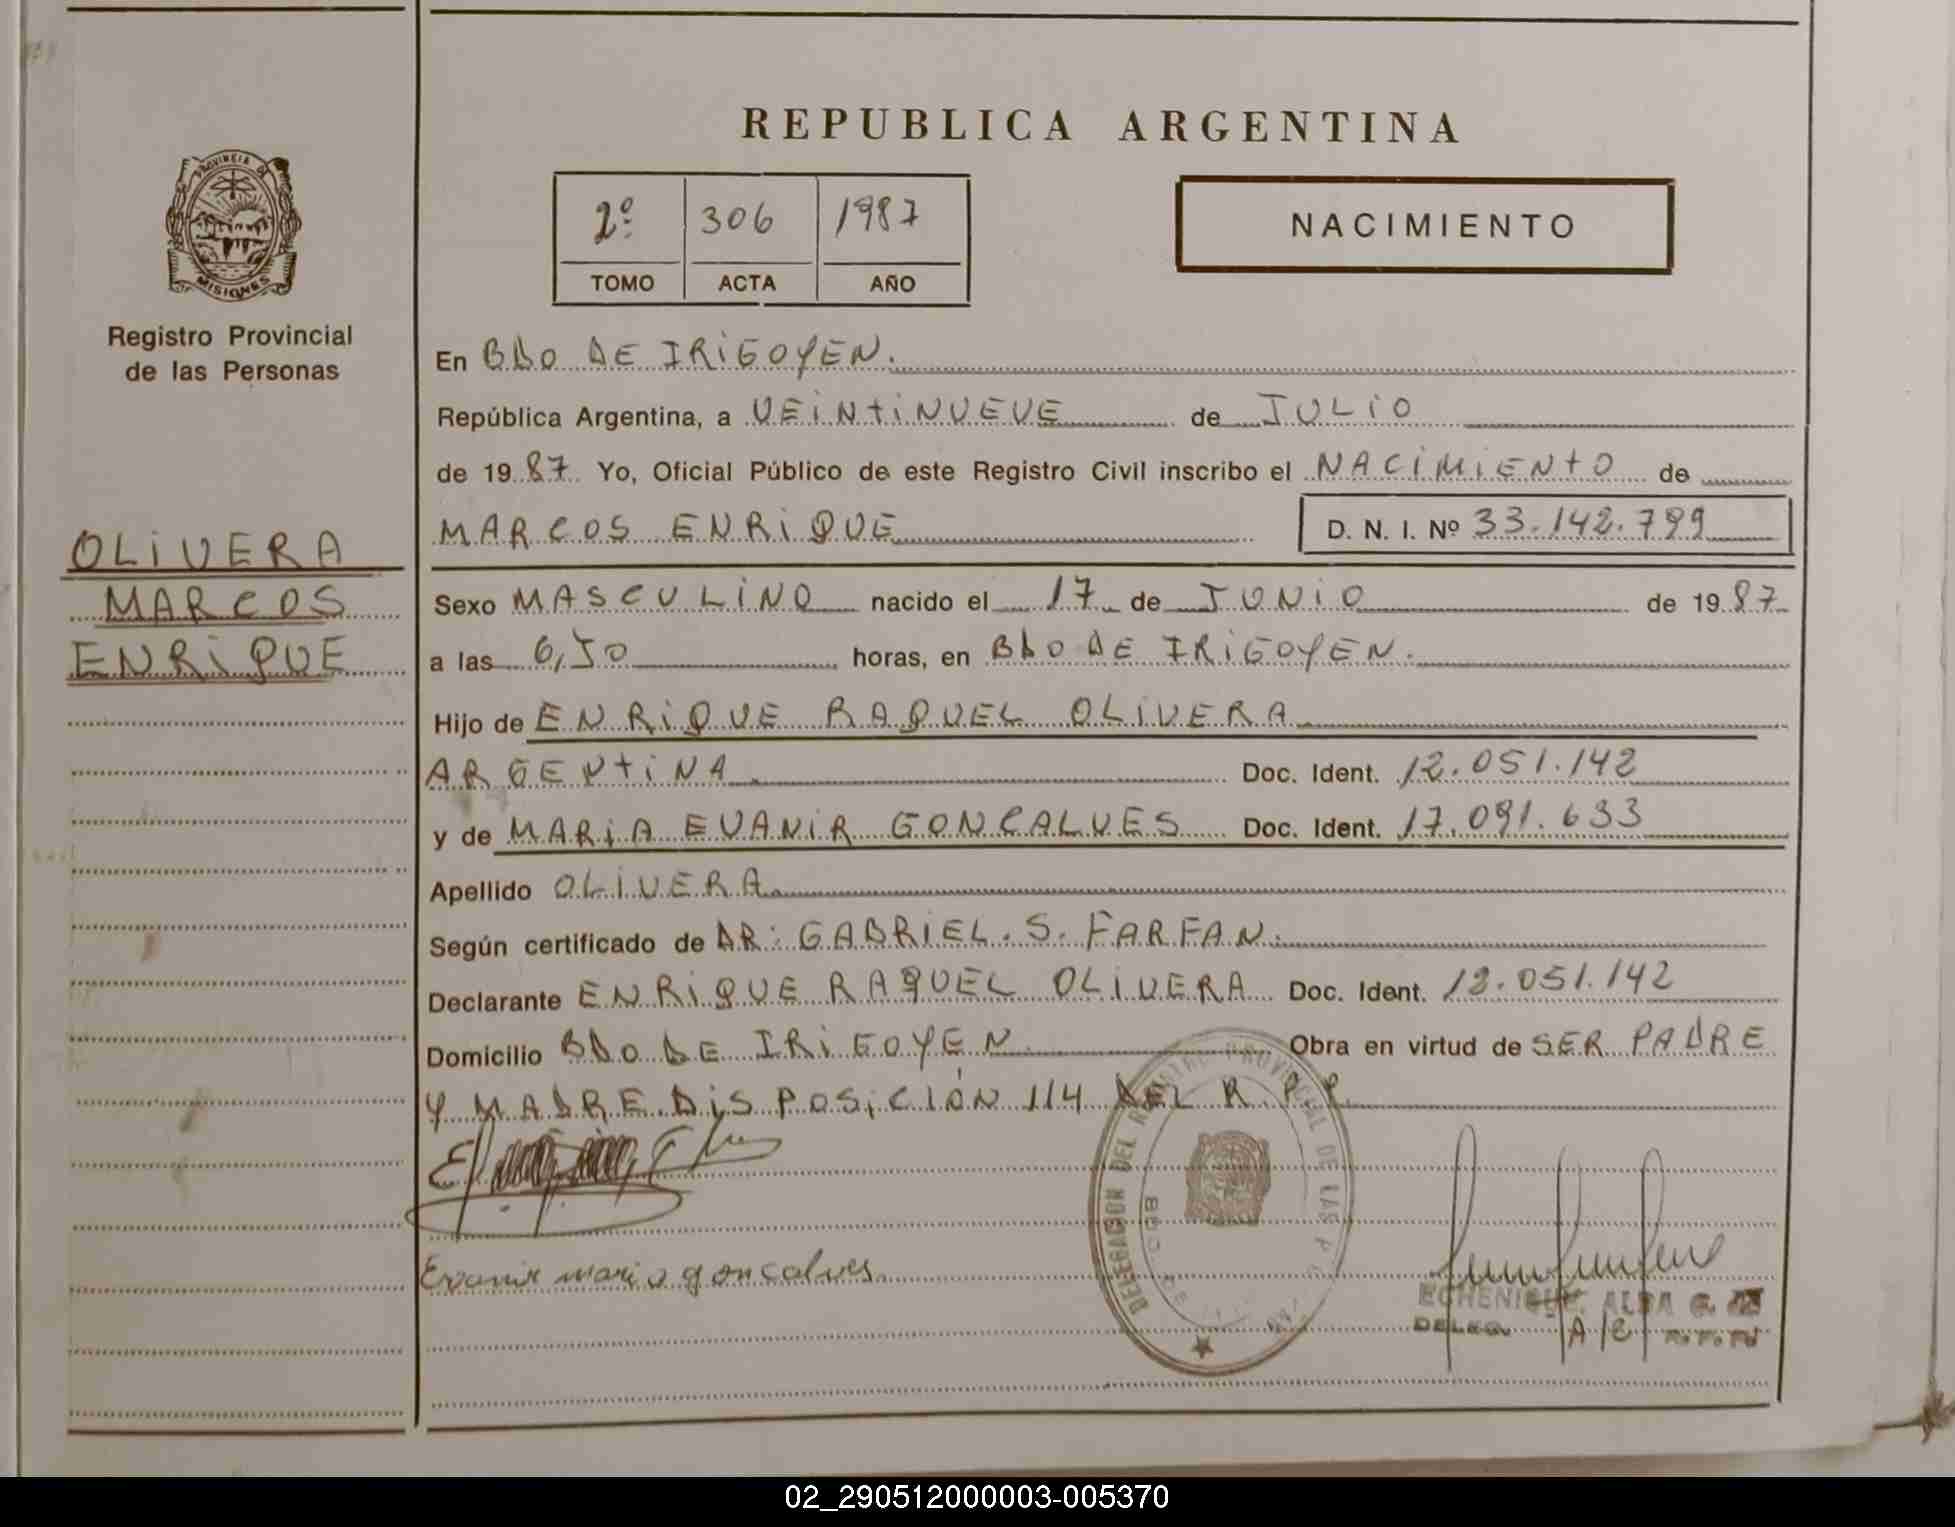 PROVINCIA DE
MISIONES
Registro Provincial
de las Personas
OLIVERA
MARCOS
ENRIQUE
REPUBLICA ARGENTINA
2º 306 1987
TOMO ACTA AÑO
NACIMIENTO
En BDO DE IRIGOYEN.
República Argentina, a VEINTINUEVE de JULIO
de 1987 Yo, Oficial Público de este Registro Civil inscribo el NACIMIENTO de
MARCOS ENRIQUE D. N. I. Nº 33.142.799
Sexo MASCULINO nacido el 17 de JUNIO de 1987
a las 6,50 horas, en BDO DE IRIGOYEN.
Hijo de ENRIQUE RAQUEL OLIVERA
ARGENTINA Doc. Ident. 12.051.142
y de MARIA EVANIR GONCALVES Doc. Ident. 17.091.633
Apellido OLIVERA
Según certificado de DR: GABRIEL. S. FARFAN.
Declarante ENRIQUE RAQUEL OLIVERA Doc. Ident. 12.051.142
Domicilio BDO DE IRIGOYEN Obra en virtud de SER PADRE
Y MADRE DISPOSICIÓN 114 DEL R.P.P.
DELEGACION DEL REGISTRO PROVINCIAL DE LAS
Evanir maria goncalves
ECHENIQUE, ALBA G.
A/C
02_290512000003-005370